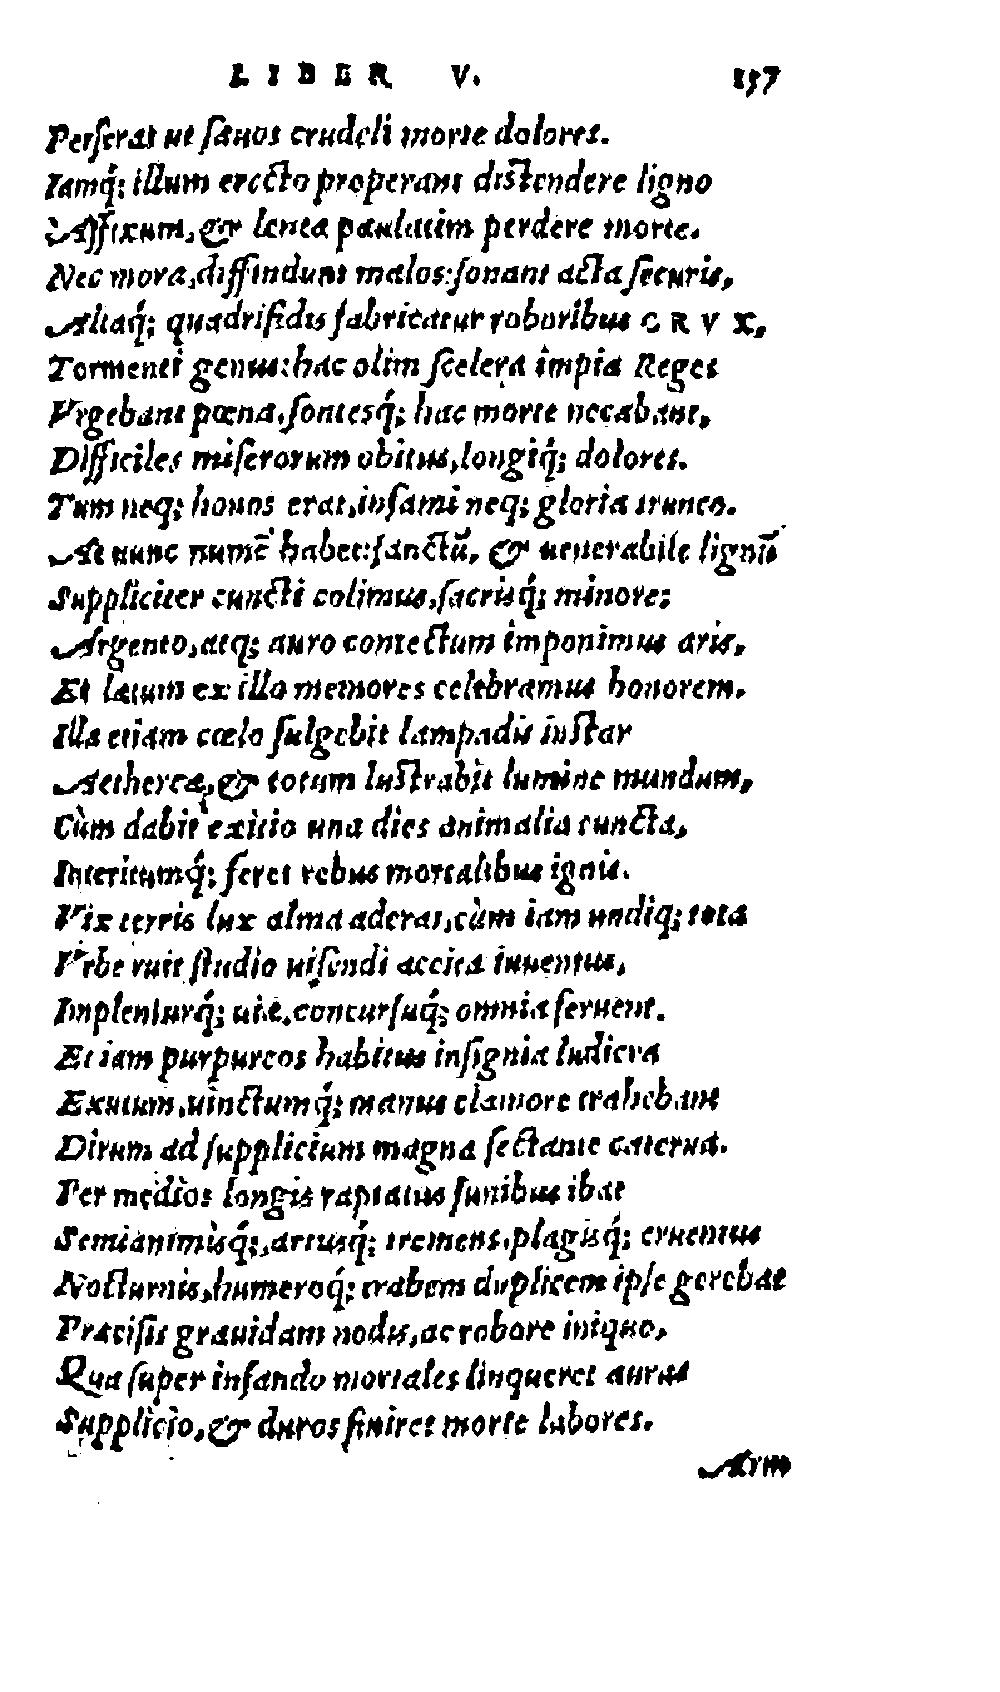 LIBER V. 157
Perferat ut sæuos crudeli morte dolores.
Iamq́; illum erecto properant distendere ligno
Affixum, & lenta paulatim perdere morte.
Nec mora, diffindunt malos: sonant acta securis,
Altaq́; quadrifidis fabricatur roboribus CRVX,
Tormenti genus: hac olim scelera impia Reges
Vrgebant pœna, sontesq́; hac morte necabant,
Difficiles miserorum obitus, longiq́; dolores.
Tum neq; honos erat, infami neq; gloria trunco.
At nunc numẽ habet: sanctũ, & uenerabile lignũ
Suppliciter cuncti colimus, sacrisq́; minores
Argento, atq; auro contectum imponimus aris,
Et latum ex illo memores celebramus honorem.
Illa etiam cœlo fulgebit lampadis instar
Aethereæ, & totum lustrabit lumine mundum,
Cùm dabit exitio una dies animalia cuncta,
Interitumq́; feret rebus mortalibus ignis.
Vix terris lux alma aderat, cùm iam undiq; tota
Vrbe ruit studio uisendi accita iuuentus,
Implenturq́; uiæ, concursuq́; omnia feruent.
Et iam purpureos habitus insignia ludicra
Exutum, uinctumq́; manus clamore trahebant
Dirum ad supplicium magna sectante caterua.
Per medios longis raptatus funibus ibat
Semianimisq́;, artusq́; tremens, plagisq́; cruentus
Nocturnis, humeroq́; trabem duplicem ipse gerebat
Præcisis grauidam nodis, ac robore iniquo,
Qua super infando mortales linqueret auras
Supplicio, & duros finiret morte labores.
Arm